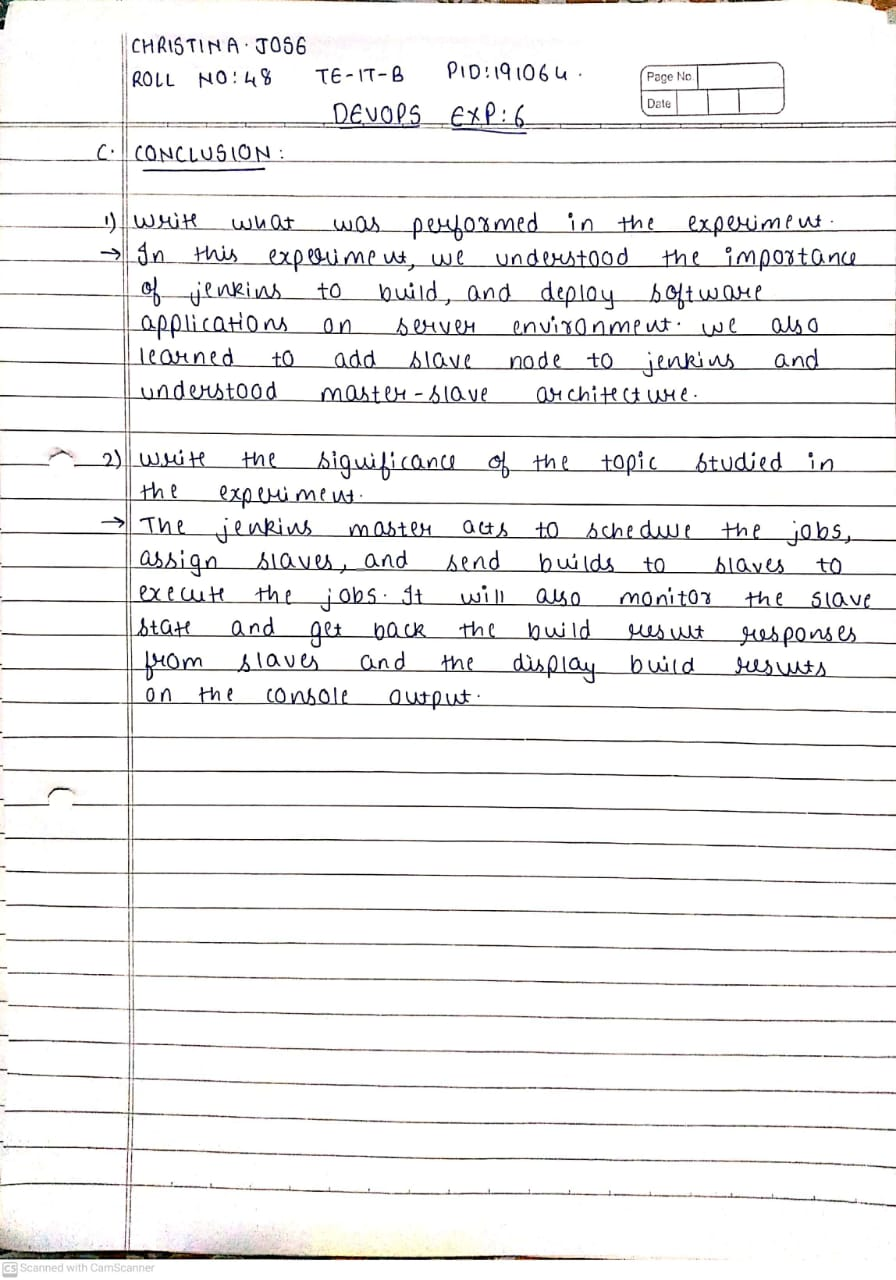 CHRISTINA. JOSE
ROLL NO: 48 TE-IT-B PID: 191064.
Page No.
Date
DEVOPS EXP: 6
C. CONCLUSION:
1) Write what was performed in the experiment.
→ In this experiment, we understood the importance
of jenkins to build, and deploy software
applications on server environment. we also
learned to add slave node to jenkins and
understood master-slave architecture.
2) Write the significance of the topic studied in
the experiment.
→ The jenkins master acts to schedule the jobs,
assign slaves, and send builds to slaves to
execute the jobs. It will also monitor the slave
state and get back the build result responses
from slaves and the display build results
on the console output.
CS Scanned with CamScanner